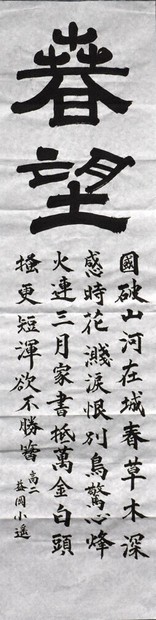 春望
國破山河在城春草木深
感時花濺淚恨別鳥驚心烽
火連三月家書抵萬金白頭
搔更短渾欲不勝簪
高二
益岡小遥